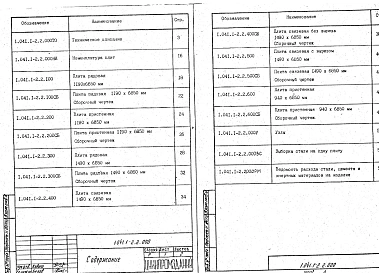 Обозначение Наименование Стр.
1.041.1-2.2.000ТО Техническое описание 3
1.041.1-2.2.000НИ Номенклатура плит 16
1.041.1-2.2.100 Плита рядовая 19
1190х6850 мм
1.041.1-2.2.100СБ Плита рядовая 1190 х 6850 мм 22
Сборочный чертеж
1.041.1-2.2.200 Плита пристенная 24
1190 х 6850 мм
1.041.1-2.2.200СБ Плита пристенная 1190 х 6850 мм 26
Сборочный чертеж
1.041.1-2.2.300 Плита рядовая 28
1490 х 6850 мм
1.041.1-2.2.300СБ Плита рядовая 1490 х 6850 мм 32
Сборочный чертеж
1.041.1-2.2.400 Плита связевая 34
1490 х 6850 мм
1.041.1-2.2.000
Содержание
Обозначение Наименование
1.041.1-2.2.400СБ Плита связевая без выреза
1490 х 6850 мм
Сборочный чертеж
1.041.1-2.2.500 Плита связевая с вырезом
1490 х 6850 мм
1.041.1-2.2.500СБ Плита связевая 1490 х 6850 мм
Сборочный чертеж
1.041.1-2.2.600 Плита пристенная
940 х 6850 мм
1.041.1-2.2.600СБ Плита пристенная 940 х 6850 мм
Сборочный чертеж
1.041.1-2.2.000У Узлы
Выборка стали на одну плиту
Ведомость расхода стали, цемента и
инертных материалов на изделия
1.041.1-2.2.000